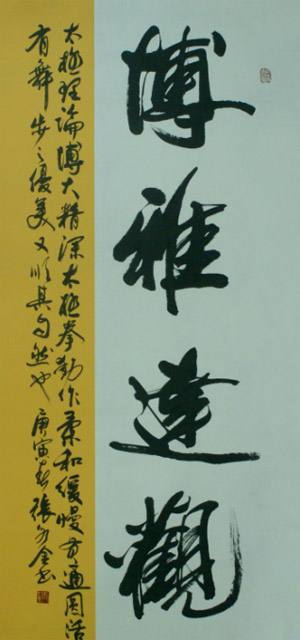 博雅達觀
太極理論博大精深太極拳動作柔和緩慢圓活
有舞步之優美又順其自然也 庚寅春 張書